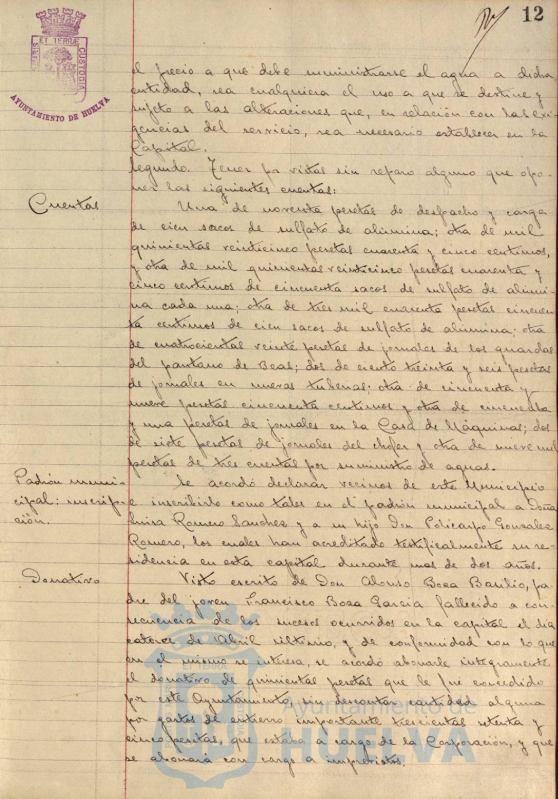 12
AYUNTAMIENTO DE HUELVA
el precio a que debe suministrarse el agua a dicha
entidad, sea cualquiera el uso a que se destine y
sujeto a las alteraciones que, en relación con las exi-
gencias del servicio, sea necesario establecer en la
Capital.
Segundo. Tener por vistas sin reparo alguno que opo-
ner las siguientes cuentas:
Cuentas
Una de noventa pesetas de despacho y carga
de cien sacos de sulfato de alúmina; otra de mil
quinientas veinticinco pesetas cuarenta y cinco centimos,
y otra de mil quinientas veinticinco pesetas cuarenta y
cinco centimos de cincuenta sacos de sulfato de alúmi-
na cada una; otra de tres mil cuarenta pesetas cincuen-
ta centimos de cien sacos de sulfato de alúmina; otra
de cuatrocientas veinte pesetas de jornales de los guardas
del pantano de Beas; dos de ciento treinta y seis pesetas
de jornales en nuevas tuberias; otra de cincuenta y
nueve pesetas cincuenta centimos y otra de cincuenta
y una pesetas de jornales en la Casa de Máquinas; dos
de siete pesetas de jornales del chofer y otra de nueve mil
pesetas de tres cuentas por suministro de aguas.
Padrón muni-
cipal: inscrip-
ción.
Se acordó declarar vecinos de este Municipio
e inscribirlo como tales en el padrón municipal a Doña
Luisa Romero Sanchez y a su hijo Don Policarpo Gonzalez
Romero, los cuales han acreditado testificalmente su re-
sidencia en esta capital durante mas de dos años.
Donativo
Visto escrito de Don Alonso Boza Basilio, pa-
dre del joven Francisco Boza Garcia fallecido a con-
secuencia de los sucesos ocurridos en la capital el dia
catorce de Abril ultimo, y de conformidad con lo que
en el mismo se interesa, se acordó abonarle integramente
el donativo de quinientas pesetas que le fue concedido
por este Ayuntamiento, sin descontar cantidad alguna
por gastos de entierro importante trescientas setenta y
cinco pesetas, que estaba a cargo de la Corporación, y que
se abonará con cargo a imprevistos.
Ayuntamiento de
HUELVA